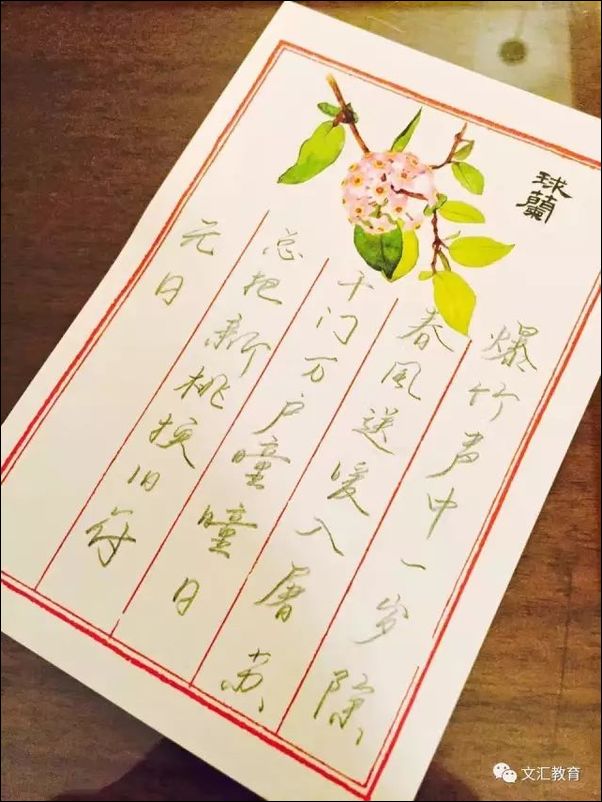 球蘭
爆竹声中一岁除
春风送暖入屠苏
千门万户曈曈日
总把新桃换旧符
元日
文汇教育